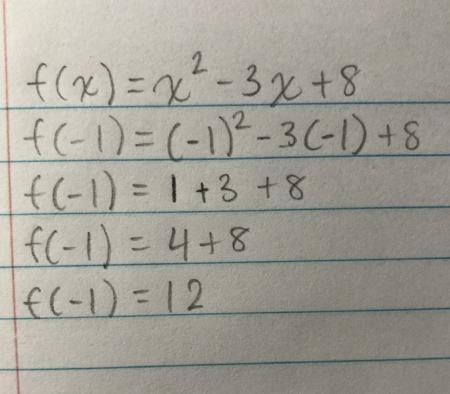 f(x) = x² - 3x + 8
f(-1) = (-1)² - 3(-1) + 8
f(-1) = 1 + 3 + 8
f(-1) = 4 + 8
f(-1) = 12